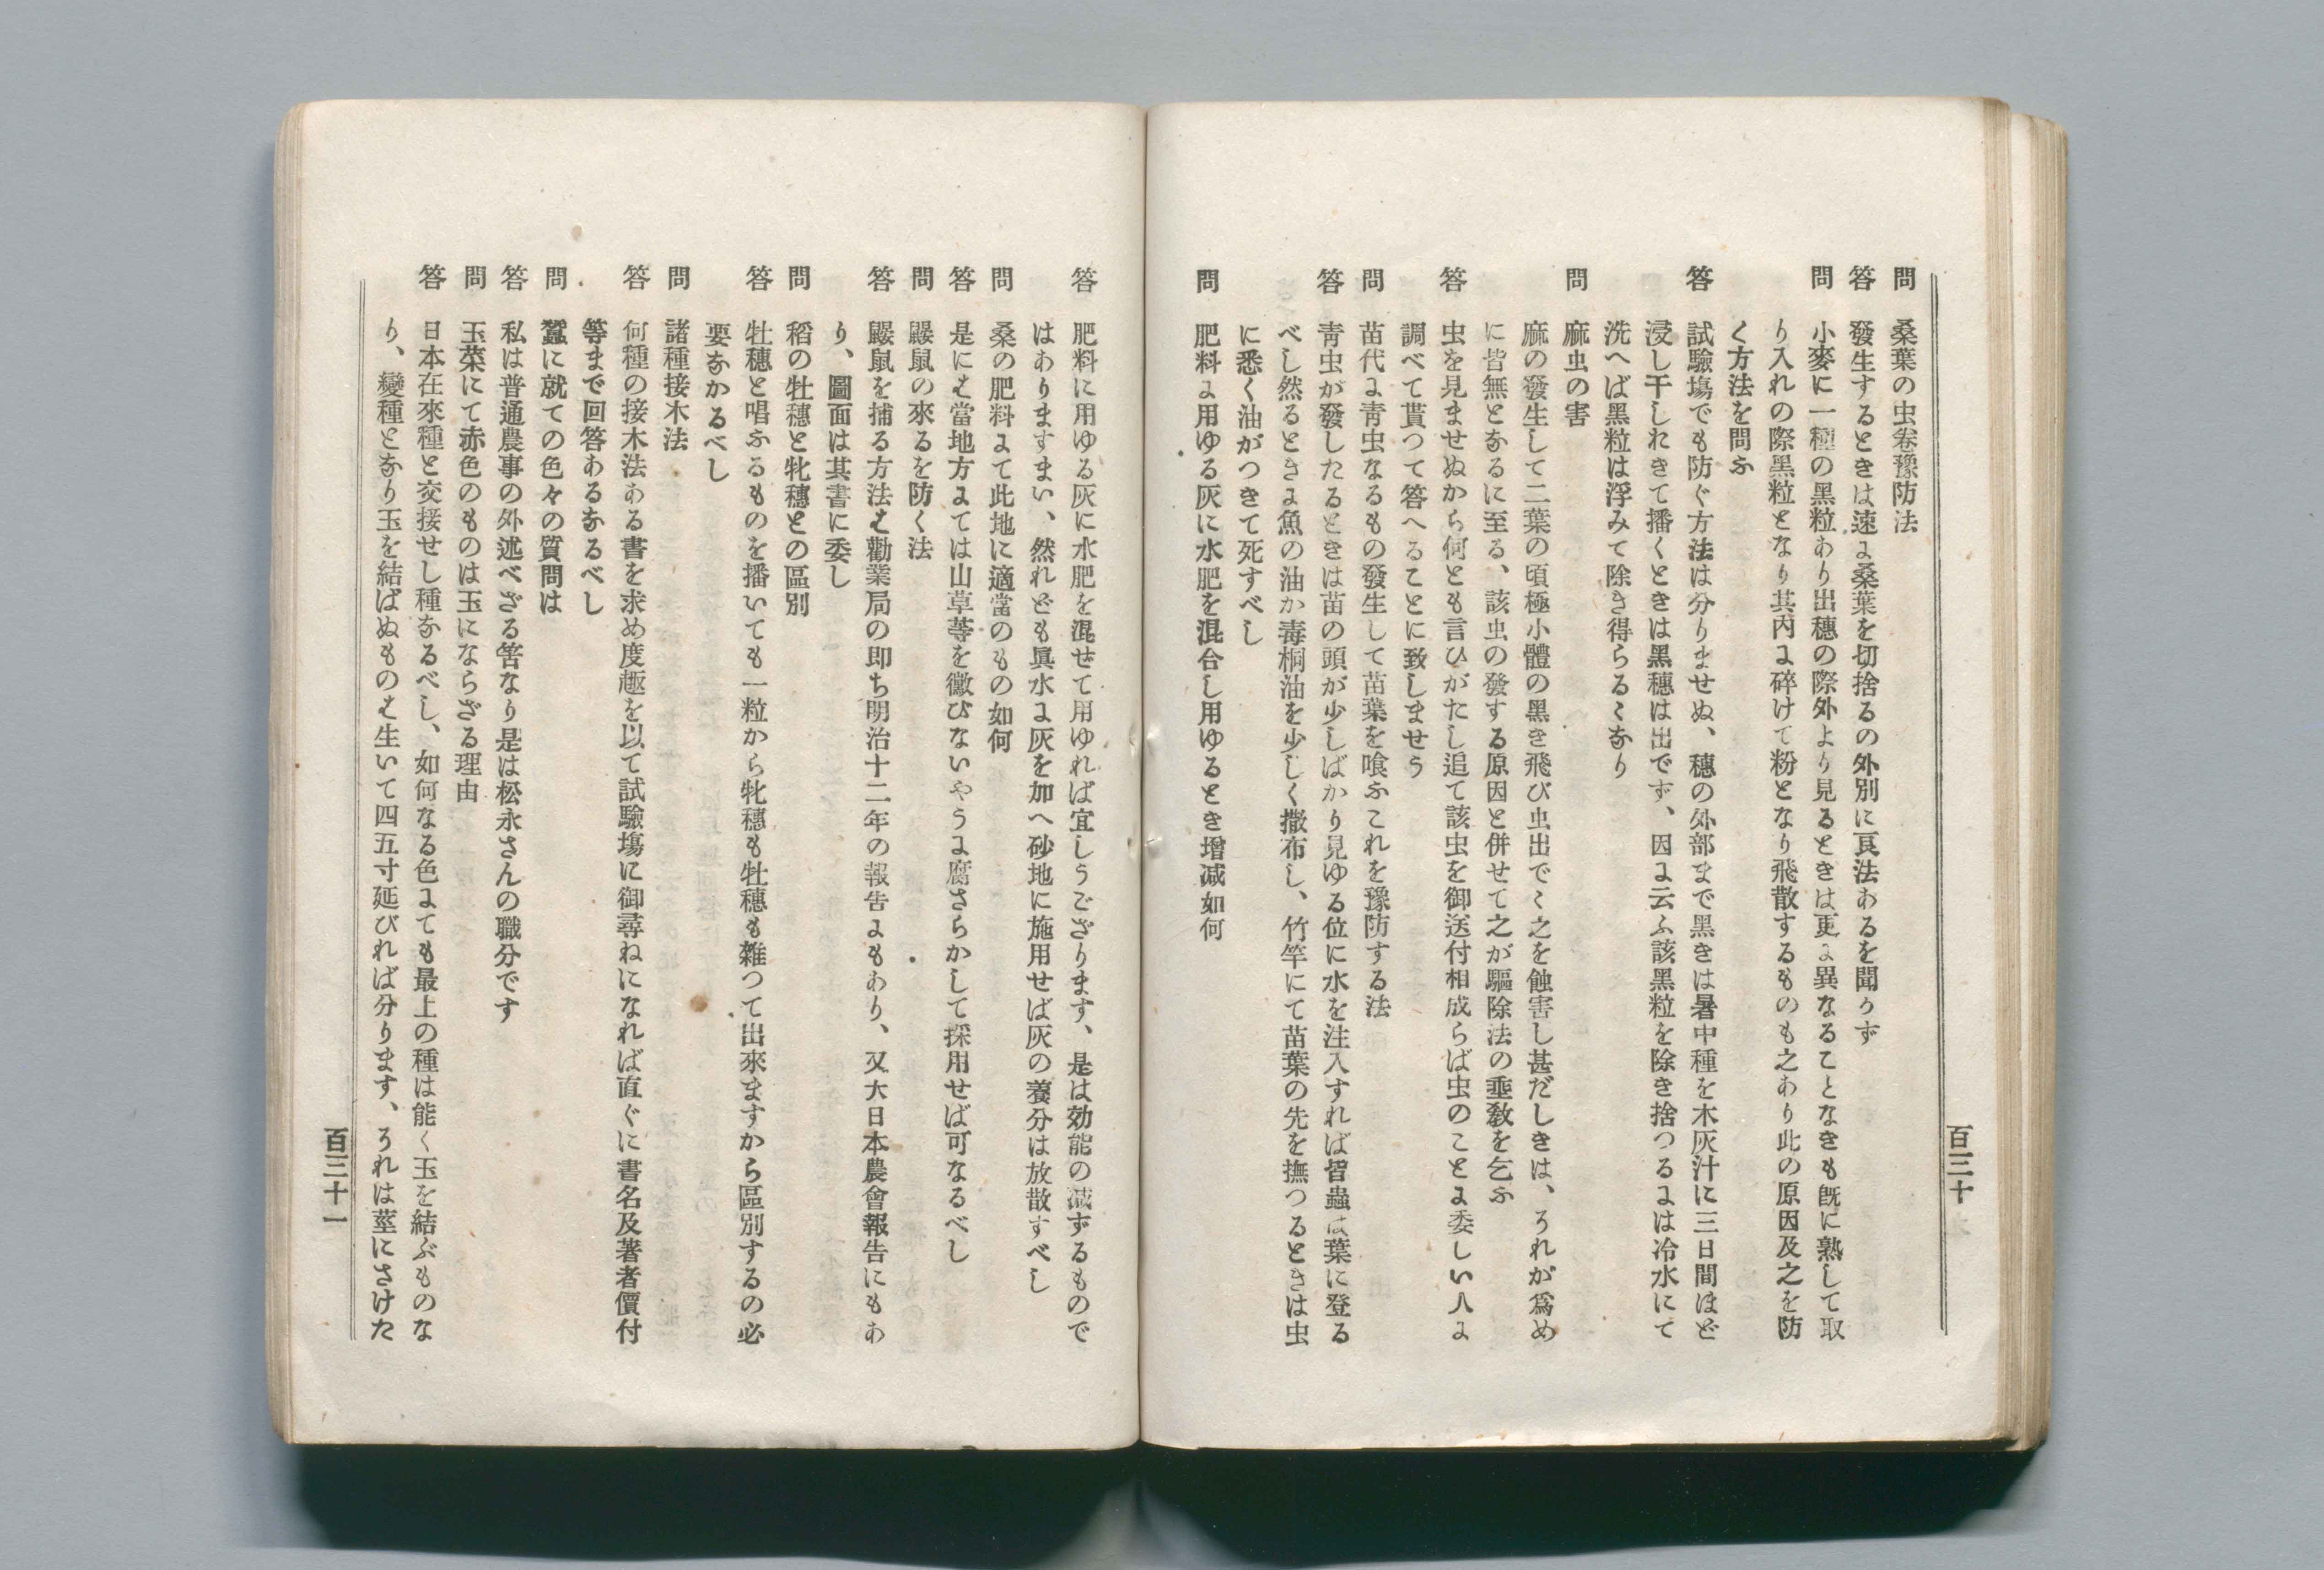 問　桑葉の虫卷豫防法
答　發生するときは速に桑葉を切捨るの外別に良法あるを聞かず
問　小麥に一種の黒粒あり出穗の際外より見るときは更に異なることなきも旣に熟して取
り入れの際黒粒となり其内に碎けて粉となり飛散するものも之あり此の原因及之を防
ぐ方法を問ふ
答　試驗塲でも防ぐ方法は分りませぬ、穗の外部まで黒きは暑中種を木灰汁に三日間ほど
浸し干しれきて播くときは黒穗は出でず、因に云ふ該黒粒を除き捨つるには冷水にて
洗へば黒粒は浮みて除き得らるくなり
問　麻虫の害
麻の發生して二葉の頃極小體の黒き飛び虫出でく之を蝕害し甚だしきは、それが爲め
に皆無となるに至る、該虫の發する原因と併せて之が驅除法の垂敎を乞ふ
答　虫を見ませぬから何とも言ひがたし追て該虫を御送付相成らば虫のことに委しい人に
調べて貰つて答へることに致しませう
問　苗代に靑虫なるもの發生して苗葉を喰ふこれを豫防する法
答　靑虫が發したるときは苗の頭が少しばかり見ゆる位に水を注入すれば皆蟲は葉に登る
べし然るときに魚の油か毒桐油を少しく撒布し、竹竿にて苗葉の先を撫つるときは虫
に悉く油がつきて死すべし
問　肥料に用ゆる灰に水肥を混合し用ゆるとき增減如何
百三十
答　肥料に用ゆる灰に水肥を混せて用ゆれば宜しうござります、是は効能の減ずるもので
はありますまい、然れども眞水に灰を加へ砂地に施用せば灰の養分は放散すべし
問　桑の肥料にて此地に適當のもの如何
答　是には當地方にては山草等を黴びないやうに腐さらかして採用せば可なるべし
問　鼹鼠の來るを防く法
答　鼹鼠を捕る方法は勸業局の即ち明治十二年の報告にもあり、又大日本農會報告にもあ
り、圖面は其書に委し
問　稻の牡穗と牝穗との區別
答　牡穗と唱ふるものを播いても一粒から牝穗も牡穗も雜つて出來ますから區別するの必
要なかるべし
問　諸種接木法
答　何種の接木法ある書を求め度趣を以て試驗塲に御尋ねになれば直ぐに書名及著者價付
等まで回答あるなるべし
問　蠶に就ての色々の質問は
答　私は普通農事の外述べざる筈なり是は松永さんの職分です
問　玉菜にて赤色のものは玉にならざる理由
答　日本在來種と交接せし種なるべし、如何なる色にても最上の種は能く玉を結ぶものな
り、變種となり玉を結ばぬものは生いて四五寸延びれば分ります、それは莖にさけた
百三十一